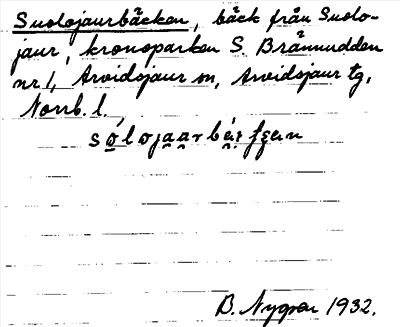 Suolojaurbäcken, bäck från Suolo-
jaur, kronoparken S. Brännudden
nr 1, Arvidsjaur sn, Arvidsjaur tg,
Norrb. l.
B. Nygren 1932.